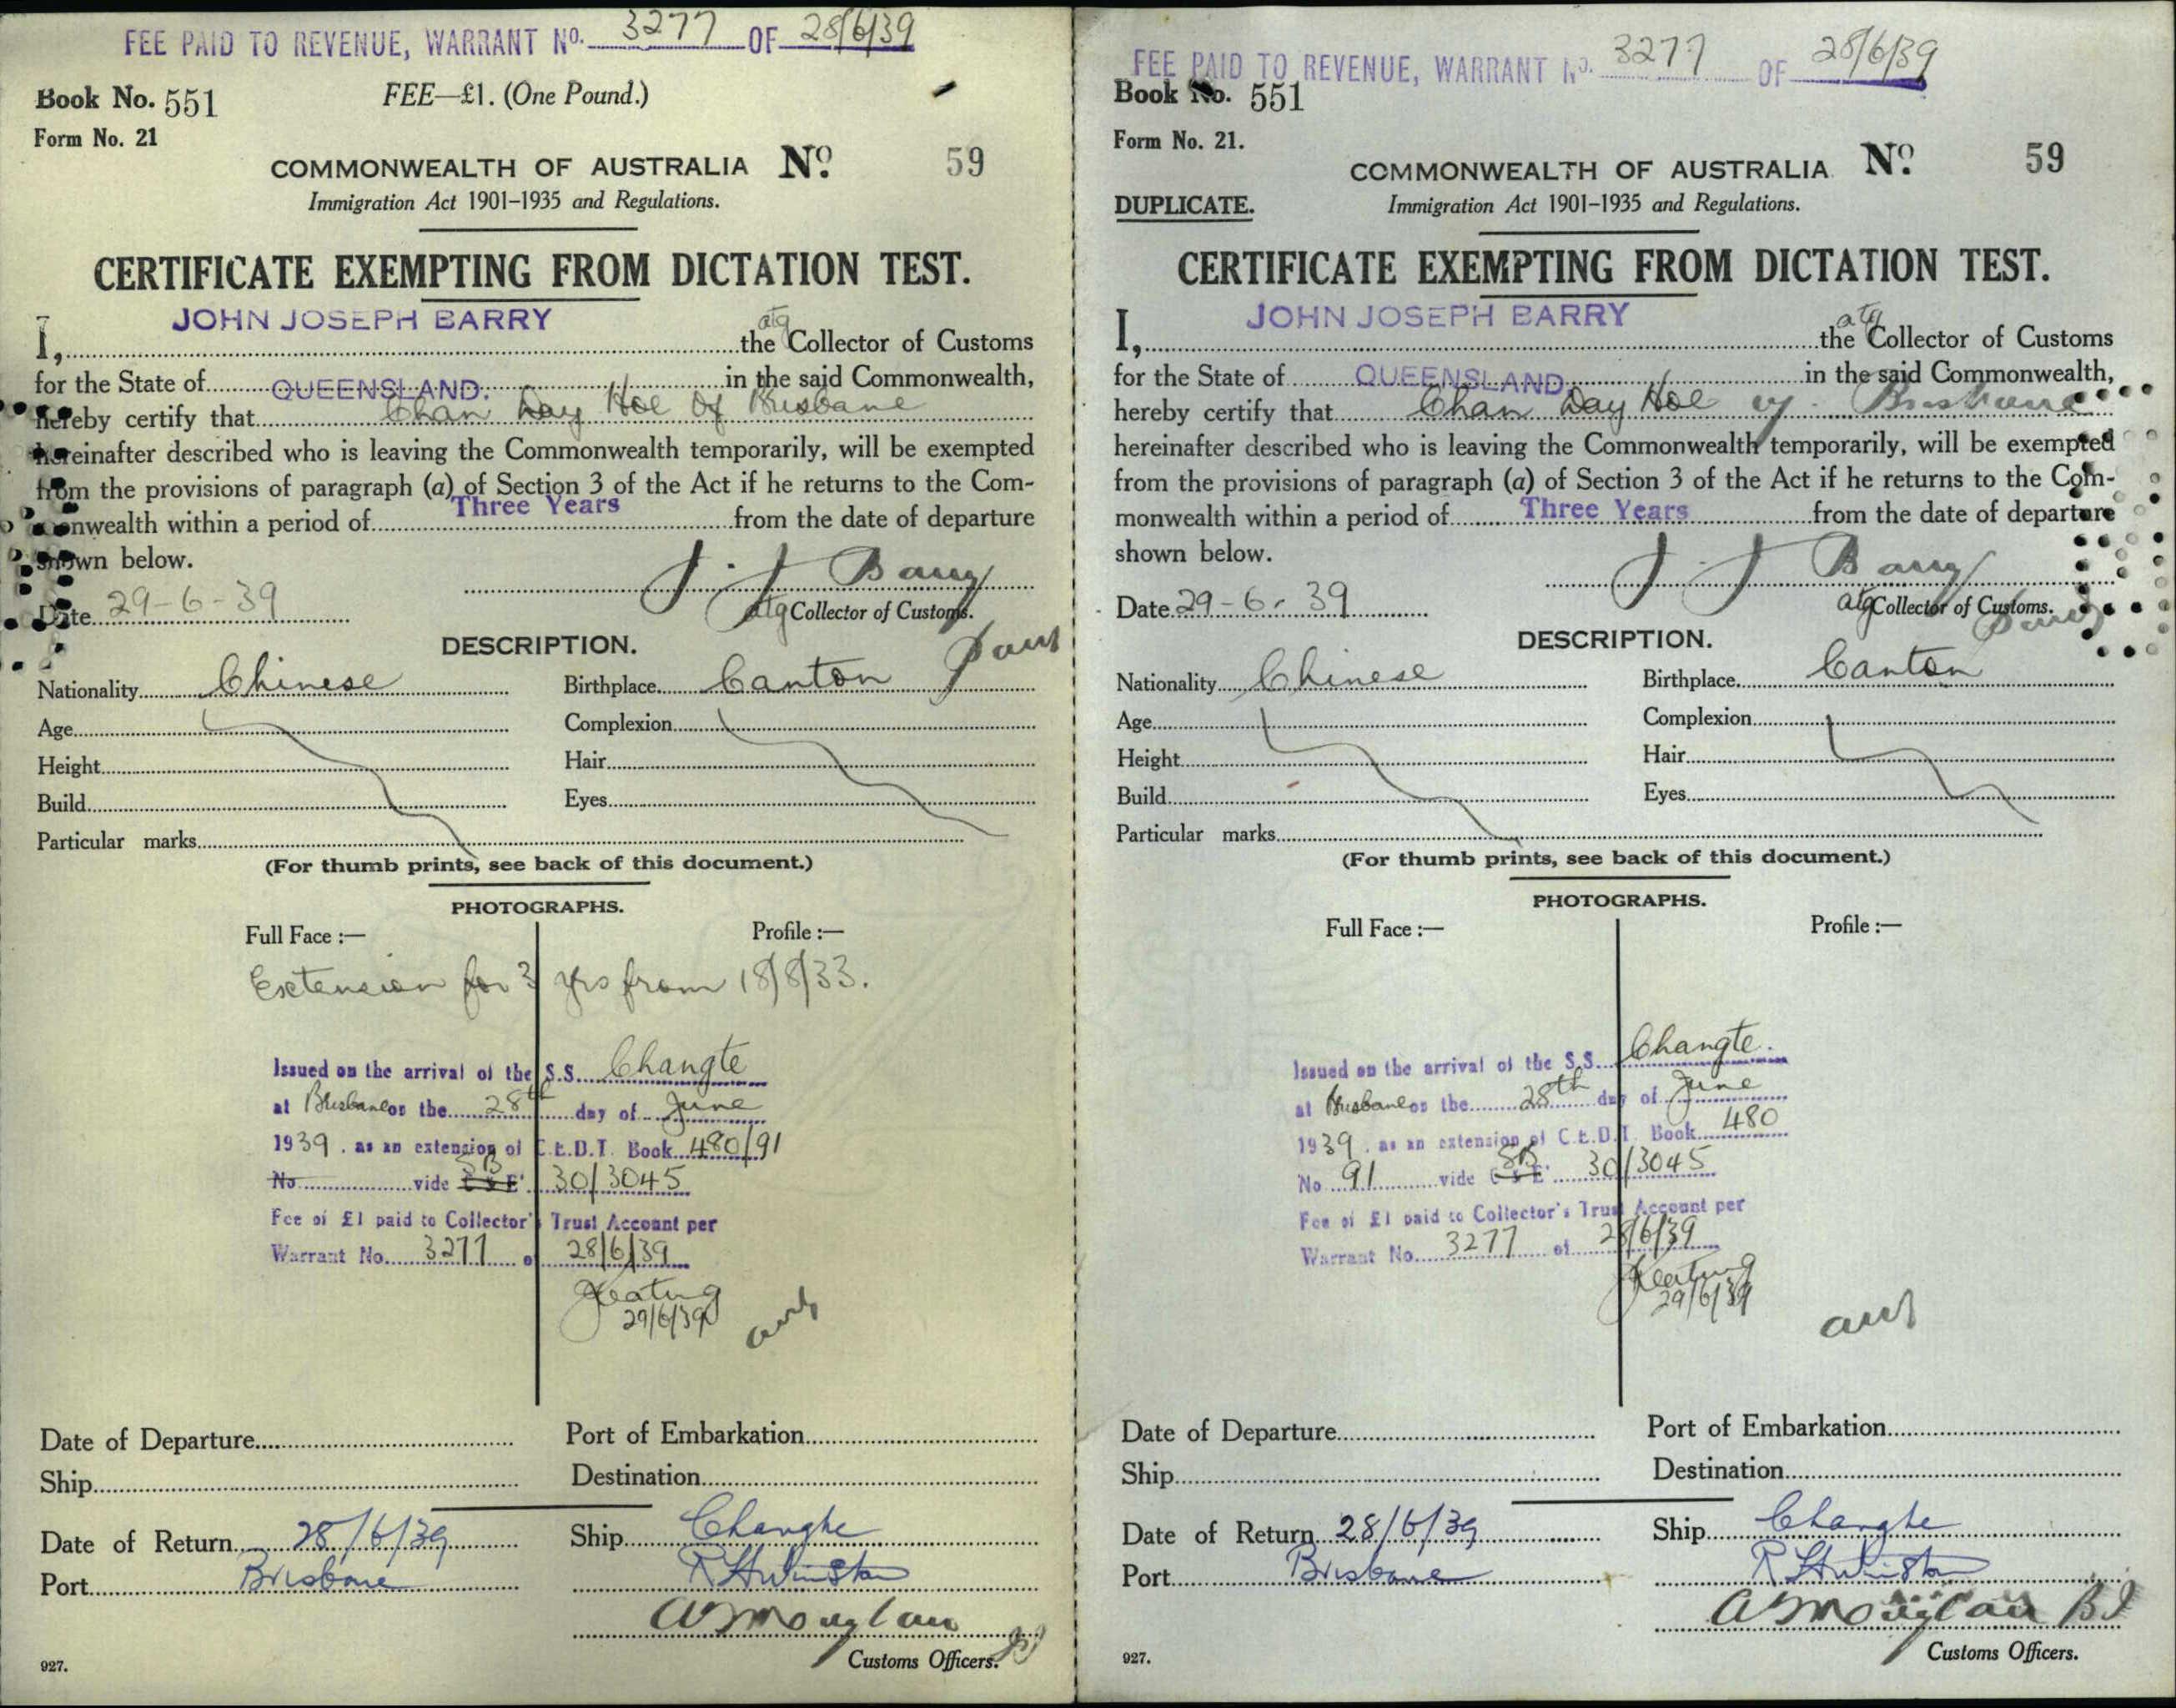 FEE PAID TO REVENUE, WARRANT No. 3277 OF 28/6/39
Book No. 551
FEE—£1. (One Pound.)
Form No. 21
COMMONWEALTH OF AUSTRALIA No. 59
Immigration Act 1901–1935 and Regulations.
CERTIFICATE EXEMPTING FROM DICTATION TEST.
JOHN JOSEPH BARRY
I, the atg Collector of Customs
for the State of QUEENSLAND. in the said Commonwealth,
hereby certify that Chan Day Hoe of Brisbane
hereinafter described who is leaving the Commonwealth temporarily, will be exempted
from the provisions of paragraph (a) of Section 3 of the Act if he returns to the Com-
monwealth within a period of Three Years from the date of departure
shown below.
J. J Barry
Date 29-6-39
atg Collector of Customs.
DESCRIPTION.
Nationality Chinese Birthplace Canton
Age Complexion
Height Hair
Build Eyes
Particular marks
(For thumb prints, see back of this document.)
PHOTOGRAPHS.
Full Face :— Profile :—
Extension for 3 yrs from 18/8/33.
Issued on the arrival of the S.S. Changte
at Brisbane on the 28th day of June
1939. as an extension of C.E.D.T. Book 480/91
No vide C & E' SB 30/3045
Fee of £1 paid to Collector's Trust Account per
Warrant No. 3277 of 28/6/39
Keating
29/6/39
Date of Departure Port of Embarkation
Ship Destination
Date of Return 28/6/39 Ship Changte
Port Brisbane
Customs Officers.
927.
FEE PAID TO REVENUE, WARRANT No. 3277 OF 28/6/39
Book No. 551
Form No. 21.
COMMONWEALTH OF AUSTRALIA No. 59
DUPLICATE.
Immigration Act 1901–1935 and Regulations.
CERTIFICATE EXEMPTING FROM DICTATION TEST.
JOHN JOSEPH BARRY
I, the atg Collector of Customs
for the State of QUEENSLAND. in the said Commonwealth,
hereby certify that Chan Day Hoe of Brisbane
hereinafter described who is leaving the Commonwealth temporarily, will be exempted
from the provisions of paragraph (a) of Section 3 of the Act if he returns to the Com-
monwealth within a period of Three Years from the date of departure
shown below.
J J Barry
Date 29-6-39
atg Collector of Customs.
DESCRIPTION.
Nationality Chinese Birthplace Canton
Age Complexion
Height Hair
Build Eyes
Particular marks
(For thumb prints, see back of this document.)
PHOTOGRAPHS.
Full Face :— Profile :—
Issued on the arrival of the S.S. Changte.
at Brisbane on the 28th day of June
1939. as an extension of C.E.D.T. Book 480
No 91 vide C & E' SB 30/3045
Fee of £1 paid to Collector's Trust Account per
Warrant No. 3277 of 28/6/39
Keating
29/6/39
Date of Departure Port of Embarkation
Ship Destination
Date of Return 28/6/39 Ship Changte
Port Brisbane
Customs Officers.
927.